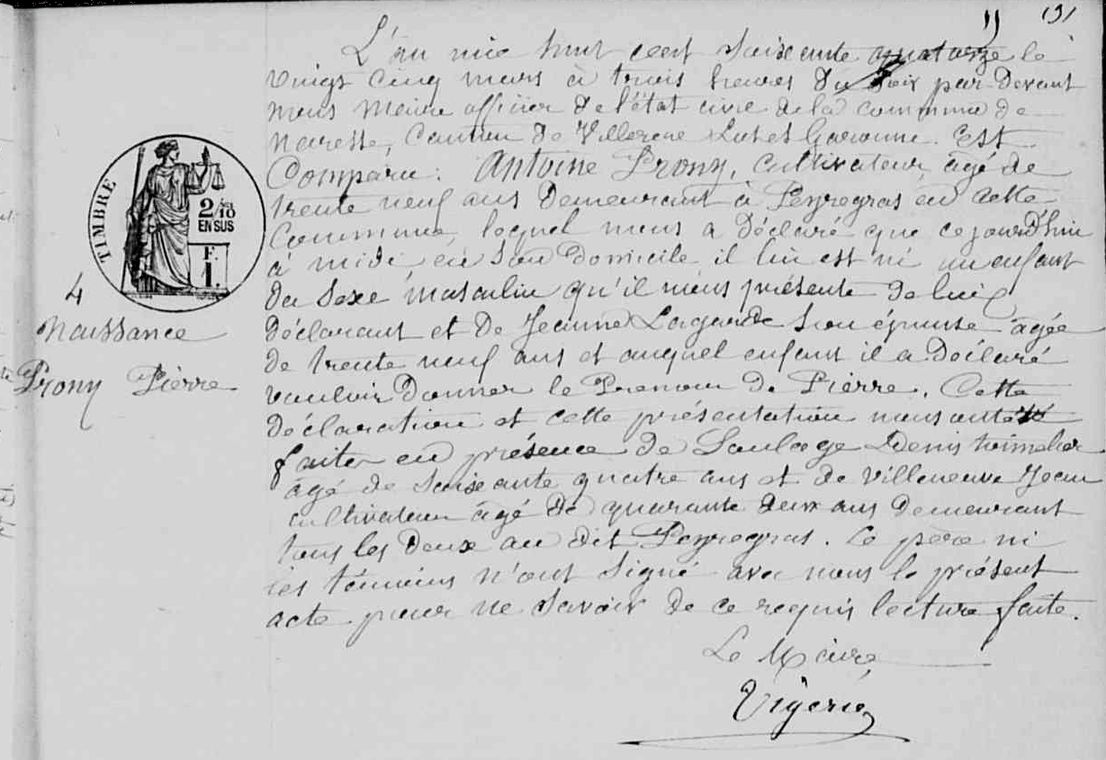 11 131
L'an mil huit cent soixante quatorze le
vingt cinq mars à trois heures du soir par devant
nous Maire officier de l'état civil de la commune de
Canton de Lot et Garonne. Est
Comparu. Antoine Prony, cultivateur, agé de
trente neuf ans demeurant à Peyregras en cette
Commune, lequel nous a déclaré que ce jourd'hui
à midi en son domicile il lui est né un enfant
du sexe masculin qu'il nous présente de lui
déclarant et de Jeanne Lagarde son épouse agée
de trente neuf ans et auquel enfant il a déclaré
vouloir donner le Prenom de Pierre. Cette
déclaration et cette présentation nous ont été
faites en présence de Soulage Denis
agé de soixante quatre ans et de Villeneuve Jean
cultivateur agé de quarante deux ans demeurant
tous les deux au dit Peyregras. Le père ni
les témoins n'ont signé avec nous le présent
acte pour ne savoir de ce requis lecture faite.
Le Maire
Vigerie
4
Naissance
Prony Pierre
TIMBRE
2/10
EN SUS
F.
1.